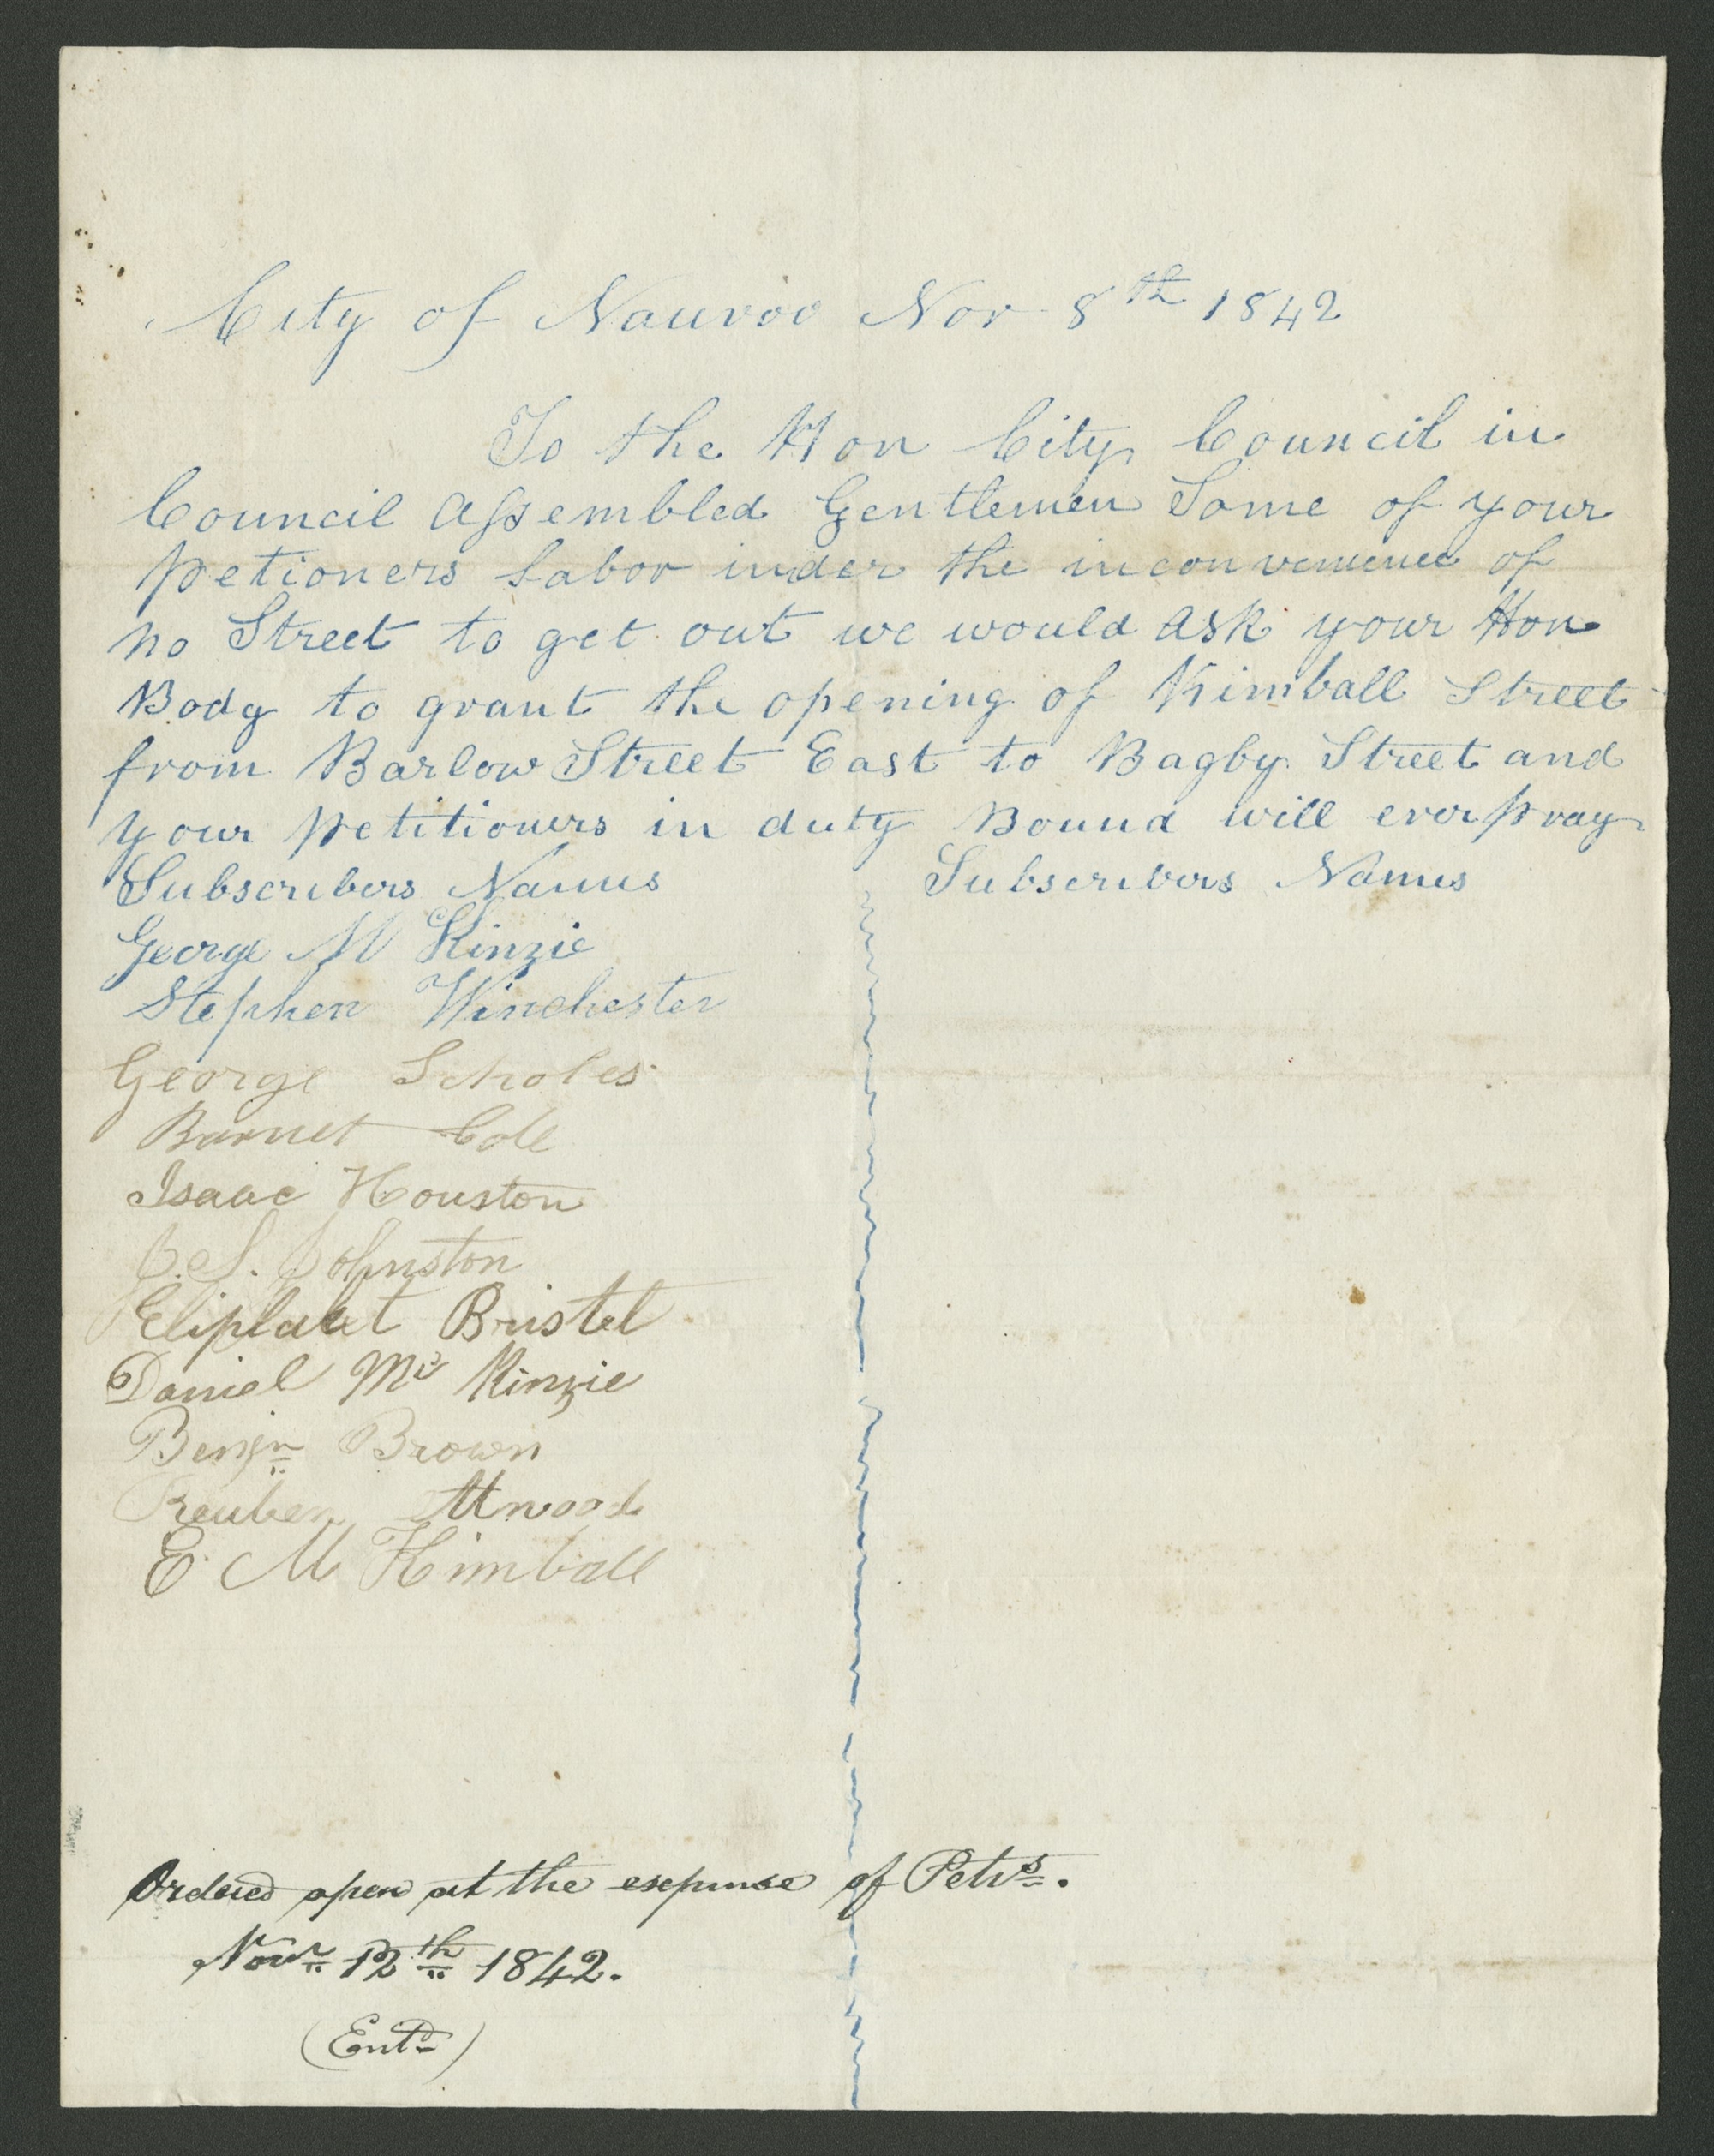 City of Nauvoo Nov 8th 1842
To the Hon City Council in
Council Assembled Gentlemen Some of your
petioners labor under the inconvenience of
no Street to get out we would ask your Hon
Body to grant the opening of Kimball Street
from Barlow Street East to Bagby Street and
your petitioners in duty Bound will ever pray
Subscribers Names
Subscribers Names
George M Kinzie
Stephen Winchester
George Scholes
Barnet Cole
Isaac Houston
Johnston
Eliphalet Bristol
Daniel Mc Kinzie
Benjn Brown
Reuben Atwood
E M Kimball
Ordered open at the expense of Petrs.
Novr 12th 1842.
(Entd)